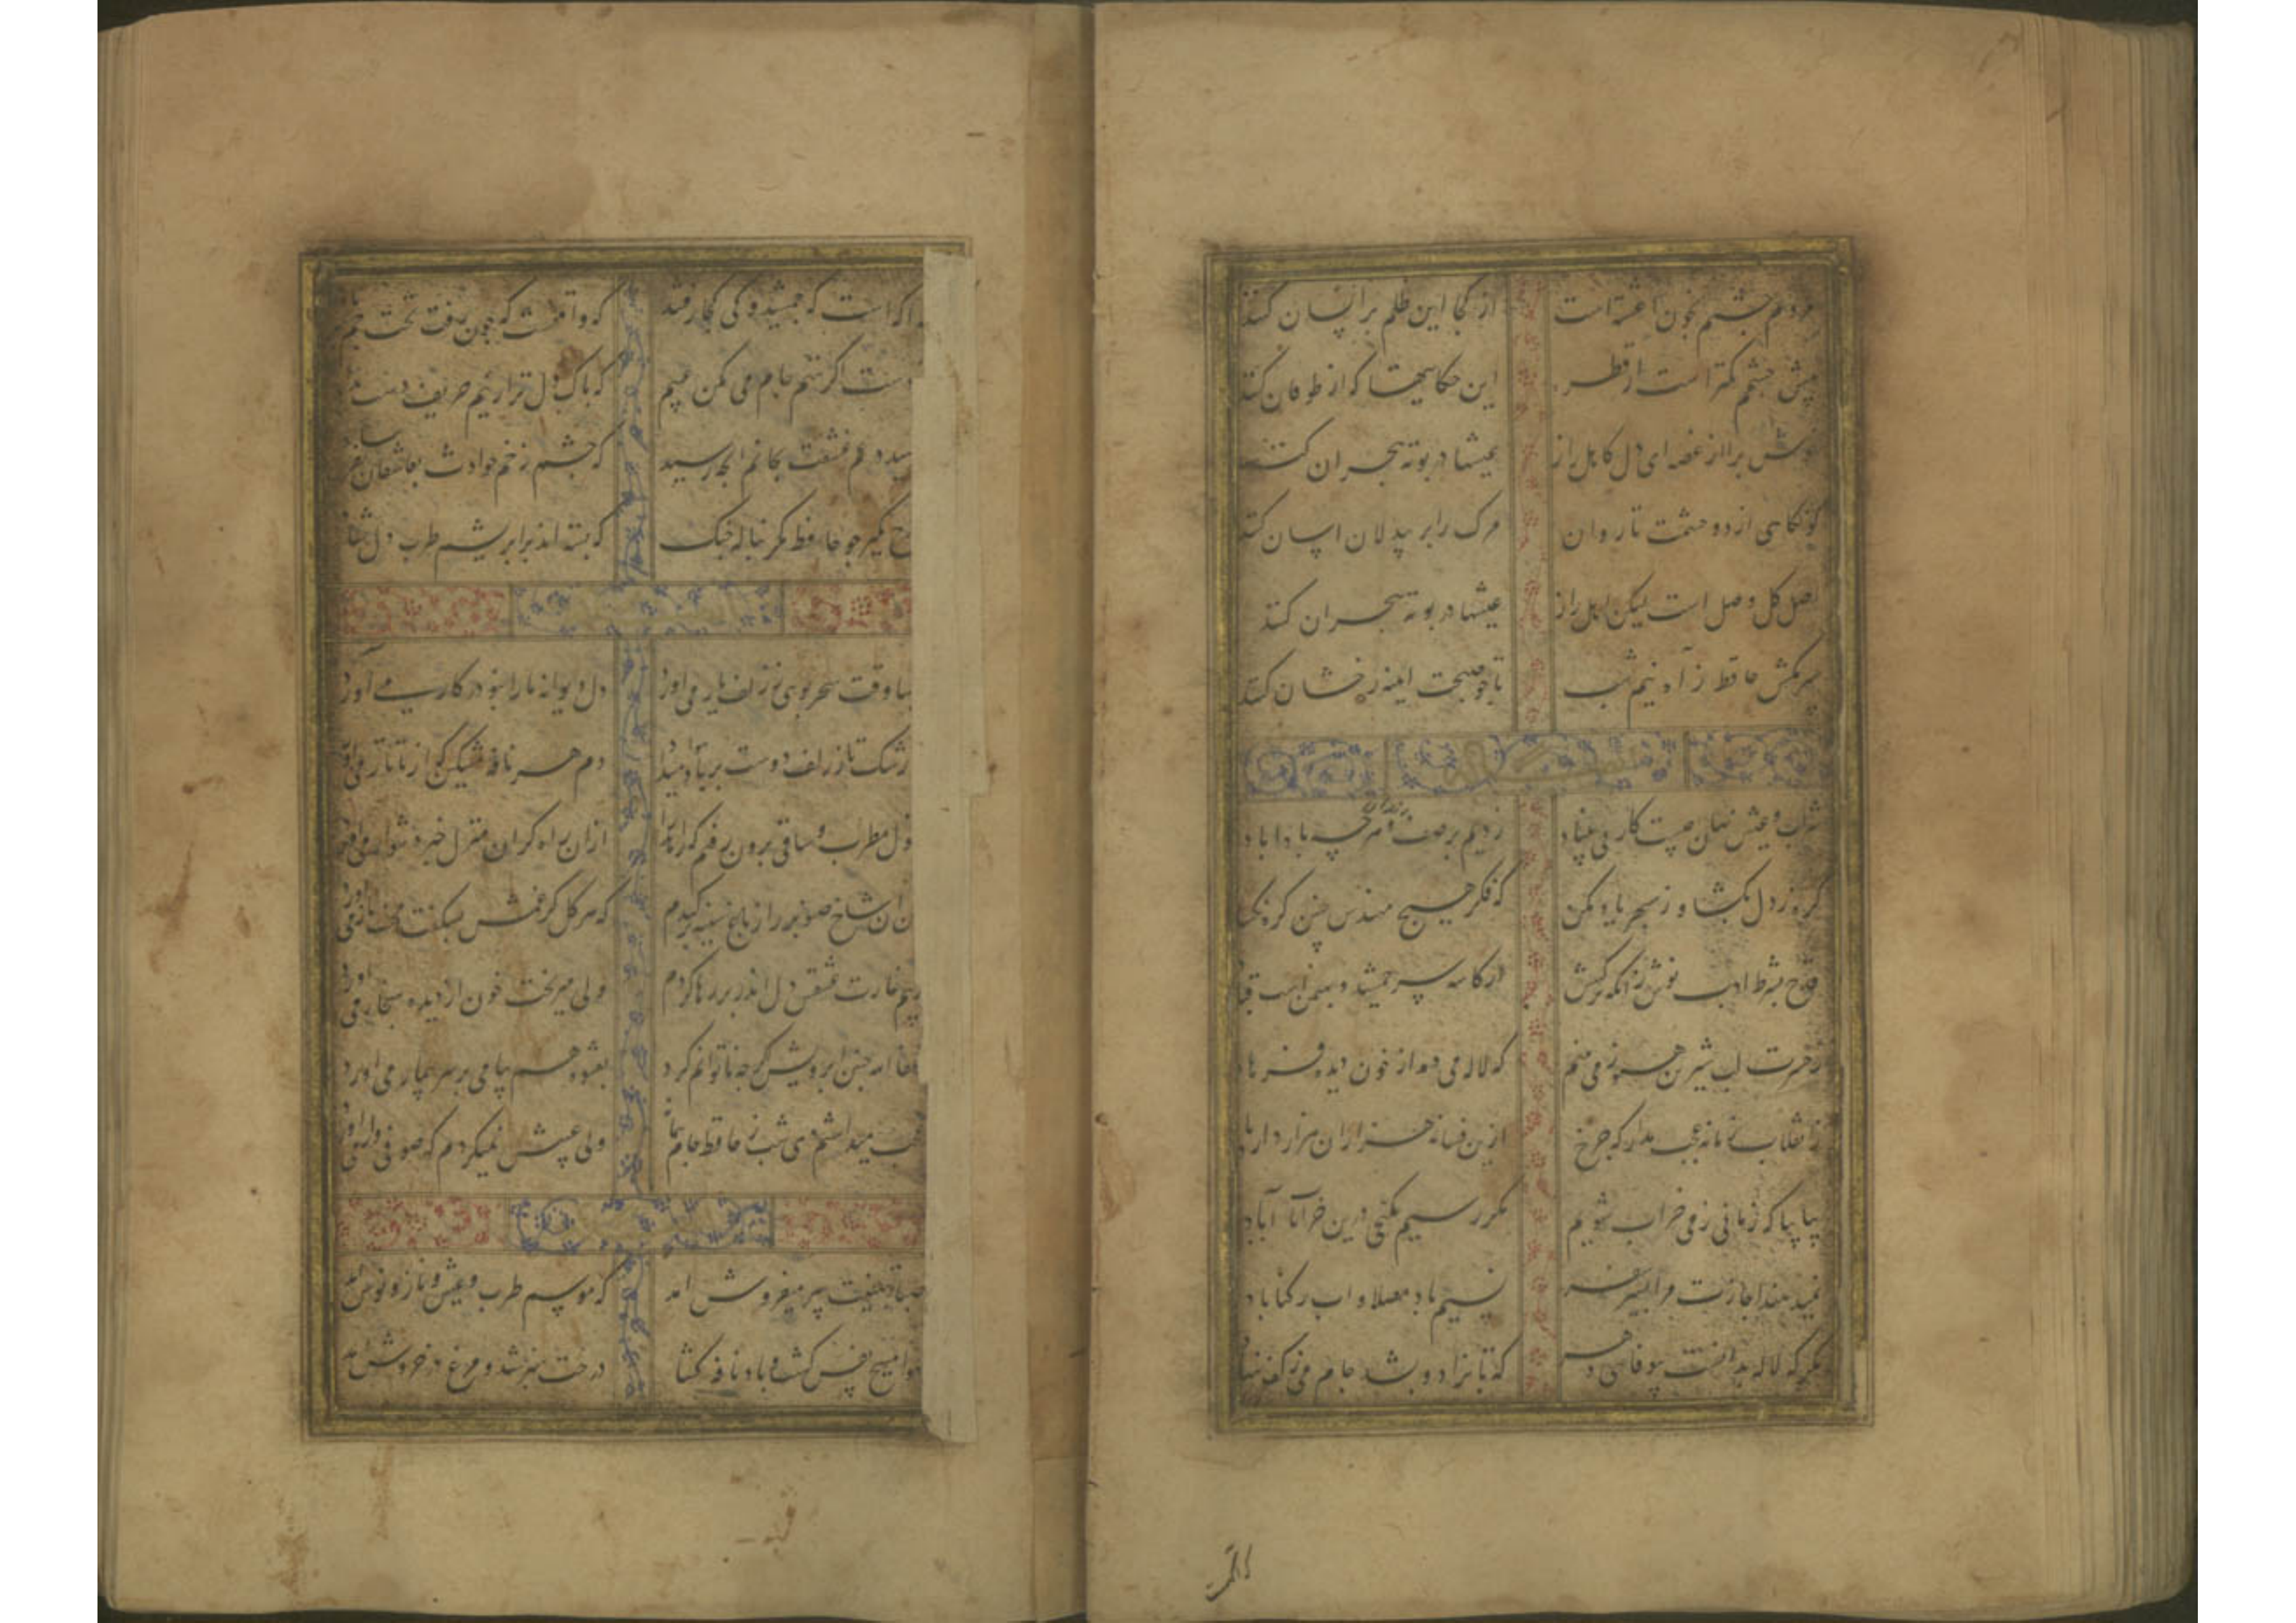 مردم چشمم بخون آغشته است از کجا این ظلم بر انسان کنند
پیش چشمم کمتر است از قطره این حکایتها که از طوفان کنند
خوش برا از غصه ای دل کاهل راز عیشها در بوته هجران کنند
کو نگاهی از دو چشمت تا روان مرک را بر بیدلان اسان کنند
اصل کل وصل است لیکن اهل راز عیشها در بوته هجران کنند
سر مکش حافظ ز آه نیم شب تا چو صبحت اینه رخشان کنند
شراب و عیش نهان چیست کار بی بنیاد زدیم بر صف رندان و هرچه بادا باد
کره ز دل بکشا و ز سپهر یاد مکن که فکر هیچ مهندس چنین کره نکشاد
قدح بشرط ادب نوش زانکه ترکیبش از کاسه سر جمشید و بهمن است و قباد
ز حسرت لب شیرین هنوز می بینم که لاله می دمد از خون دیده فرهاد
ز انقلاب زمانه عجب مدار که چرخ ازین فسانه هزاران هزار دارد یاد
بیا بیا که زمانی ز می خراب شویم مکر رسیم بکنجی درین خراب آباد
نمیدهند اجازت مرا بسیر سفر نسیم باد مصلا و اب رکناباد
مکر که لاله بدانست بیوفائی دهر که تا بزاد و بشد جام می ز کف ننهاد
که اکه است که جمشید و کی کجا رفتند که واقفست که چون رفت تخت جم
دست اکر نتهم جام می مکن عیبم که پاک دل تر ازینم حریف دست نداد
رسید در غم عشقت بجانم انچه رسید که چشم زخم حوادث بعاشقان مرساد
قدح مکیر چو حافظ مکر بناله چنک که بسته اند بر ابریشم طرب دل شاد
صبا وقت سحر بوئی ز زلف یار می اورد دل دیوانه ما را بنو در کار می آورد
ز رشک تار زلف دوست بر باد میداد دم هر نافه مشکین که از تاتار می اورد
قول مطرب و ساقی برون رفتم ازان راه کران منزل خبر دشوار می اورد
من ان شاخ صنوبر را ز باغ سینه برکندم که هر کل کز غمش بشکفت محنت بار می اورد
ز بیم غارت عشقش دل اندر بر رها کردم ولی میریخت خون از دیده بنجار می اورد
عفا الله چین ابرویش اکرچه ناتوانم کرد بعشوه هم پیامی بر سر بیمار می اورد
عجب میداشتم دی شب ز حافظ جام و پیمانه ولی عیبش نمیکردم که صوفی وار می اورد
صبا بتهنیت پیر میفروش امد که موسم طرب و عیش و ناز و نوش امد
هوا مسیح نفس کشت و باد نافه کشا درخت سبز شد و مرغ در خروش امد